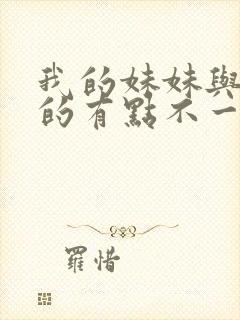 我的妹妹與
的有點不一
羅惜